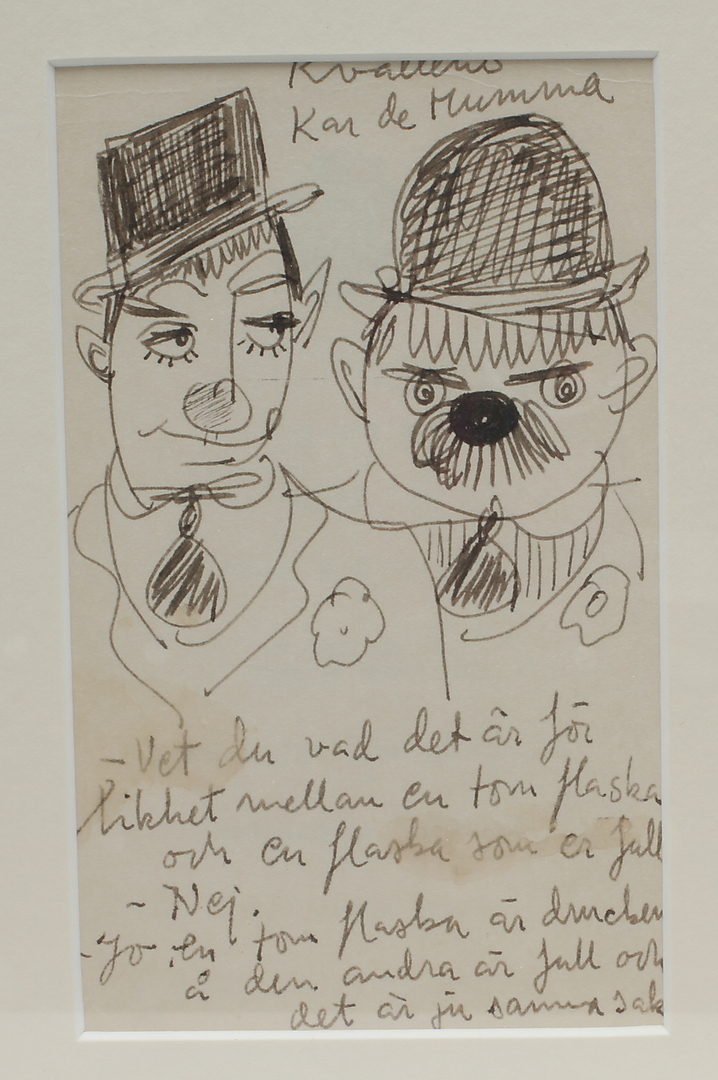 Kvällens
Kar de Mumma
- Vet du vad det är för
likhet mellan en tom flaska
och en flaska som er full
- Nej.
- Jo en tom flaska är drucken
å den andra är full och
det är ju samma sak